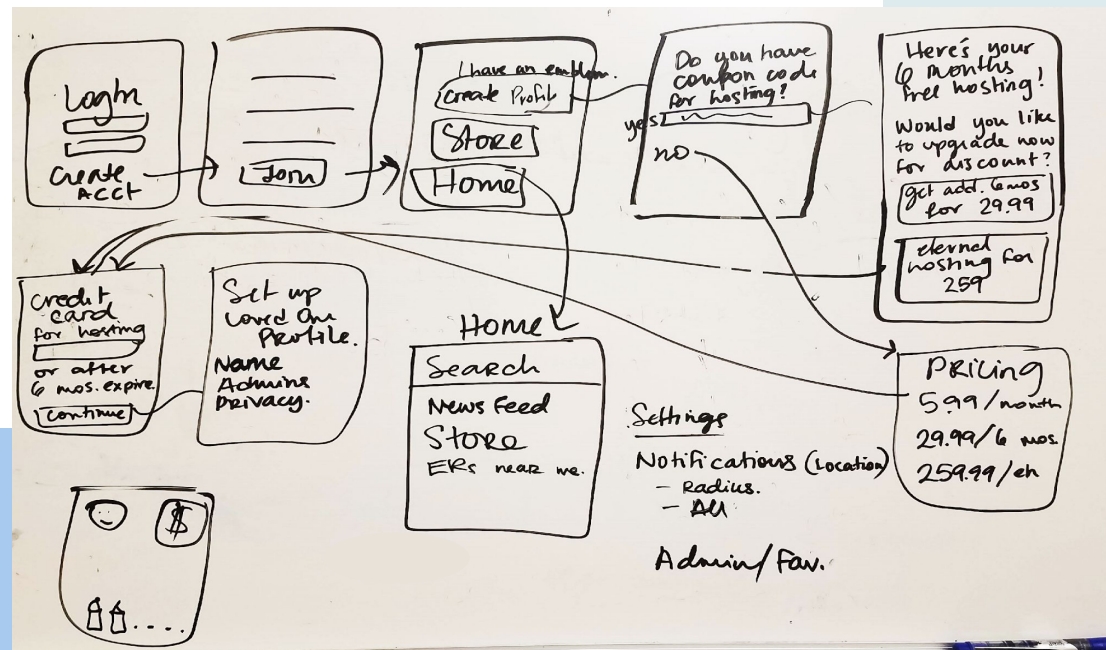 Login
Create
ACCT
Join
I have an emblem.
Create Profile
Store
Home
Do you have
coupon code
for hosting?
yes
no
Here's your
6 months
free hosting!
Would you like
to upgrade now
for discount?
get add. 6 mos
for 29.99
eternal
hosting for
259
credit
card
for hosting
or after
6 mos. expire
Continue
Set up
Loved One
Profile.
Name
Admins
Privacy.
Home
Search
News Feed
Store
ERs near me.
Settings
Notifications (Location)
- Radius.
- All
Admin/Fav.
PRICING
5.99/month
29.99/6 mos.
259.99/
$